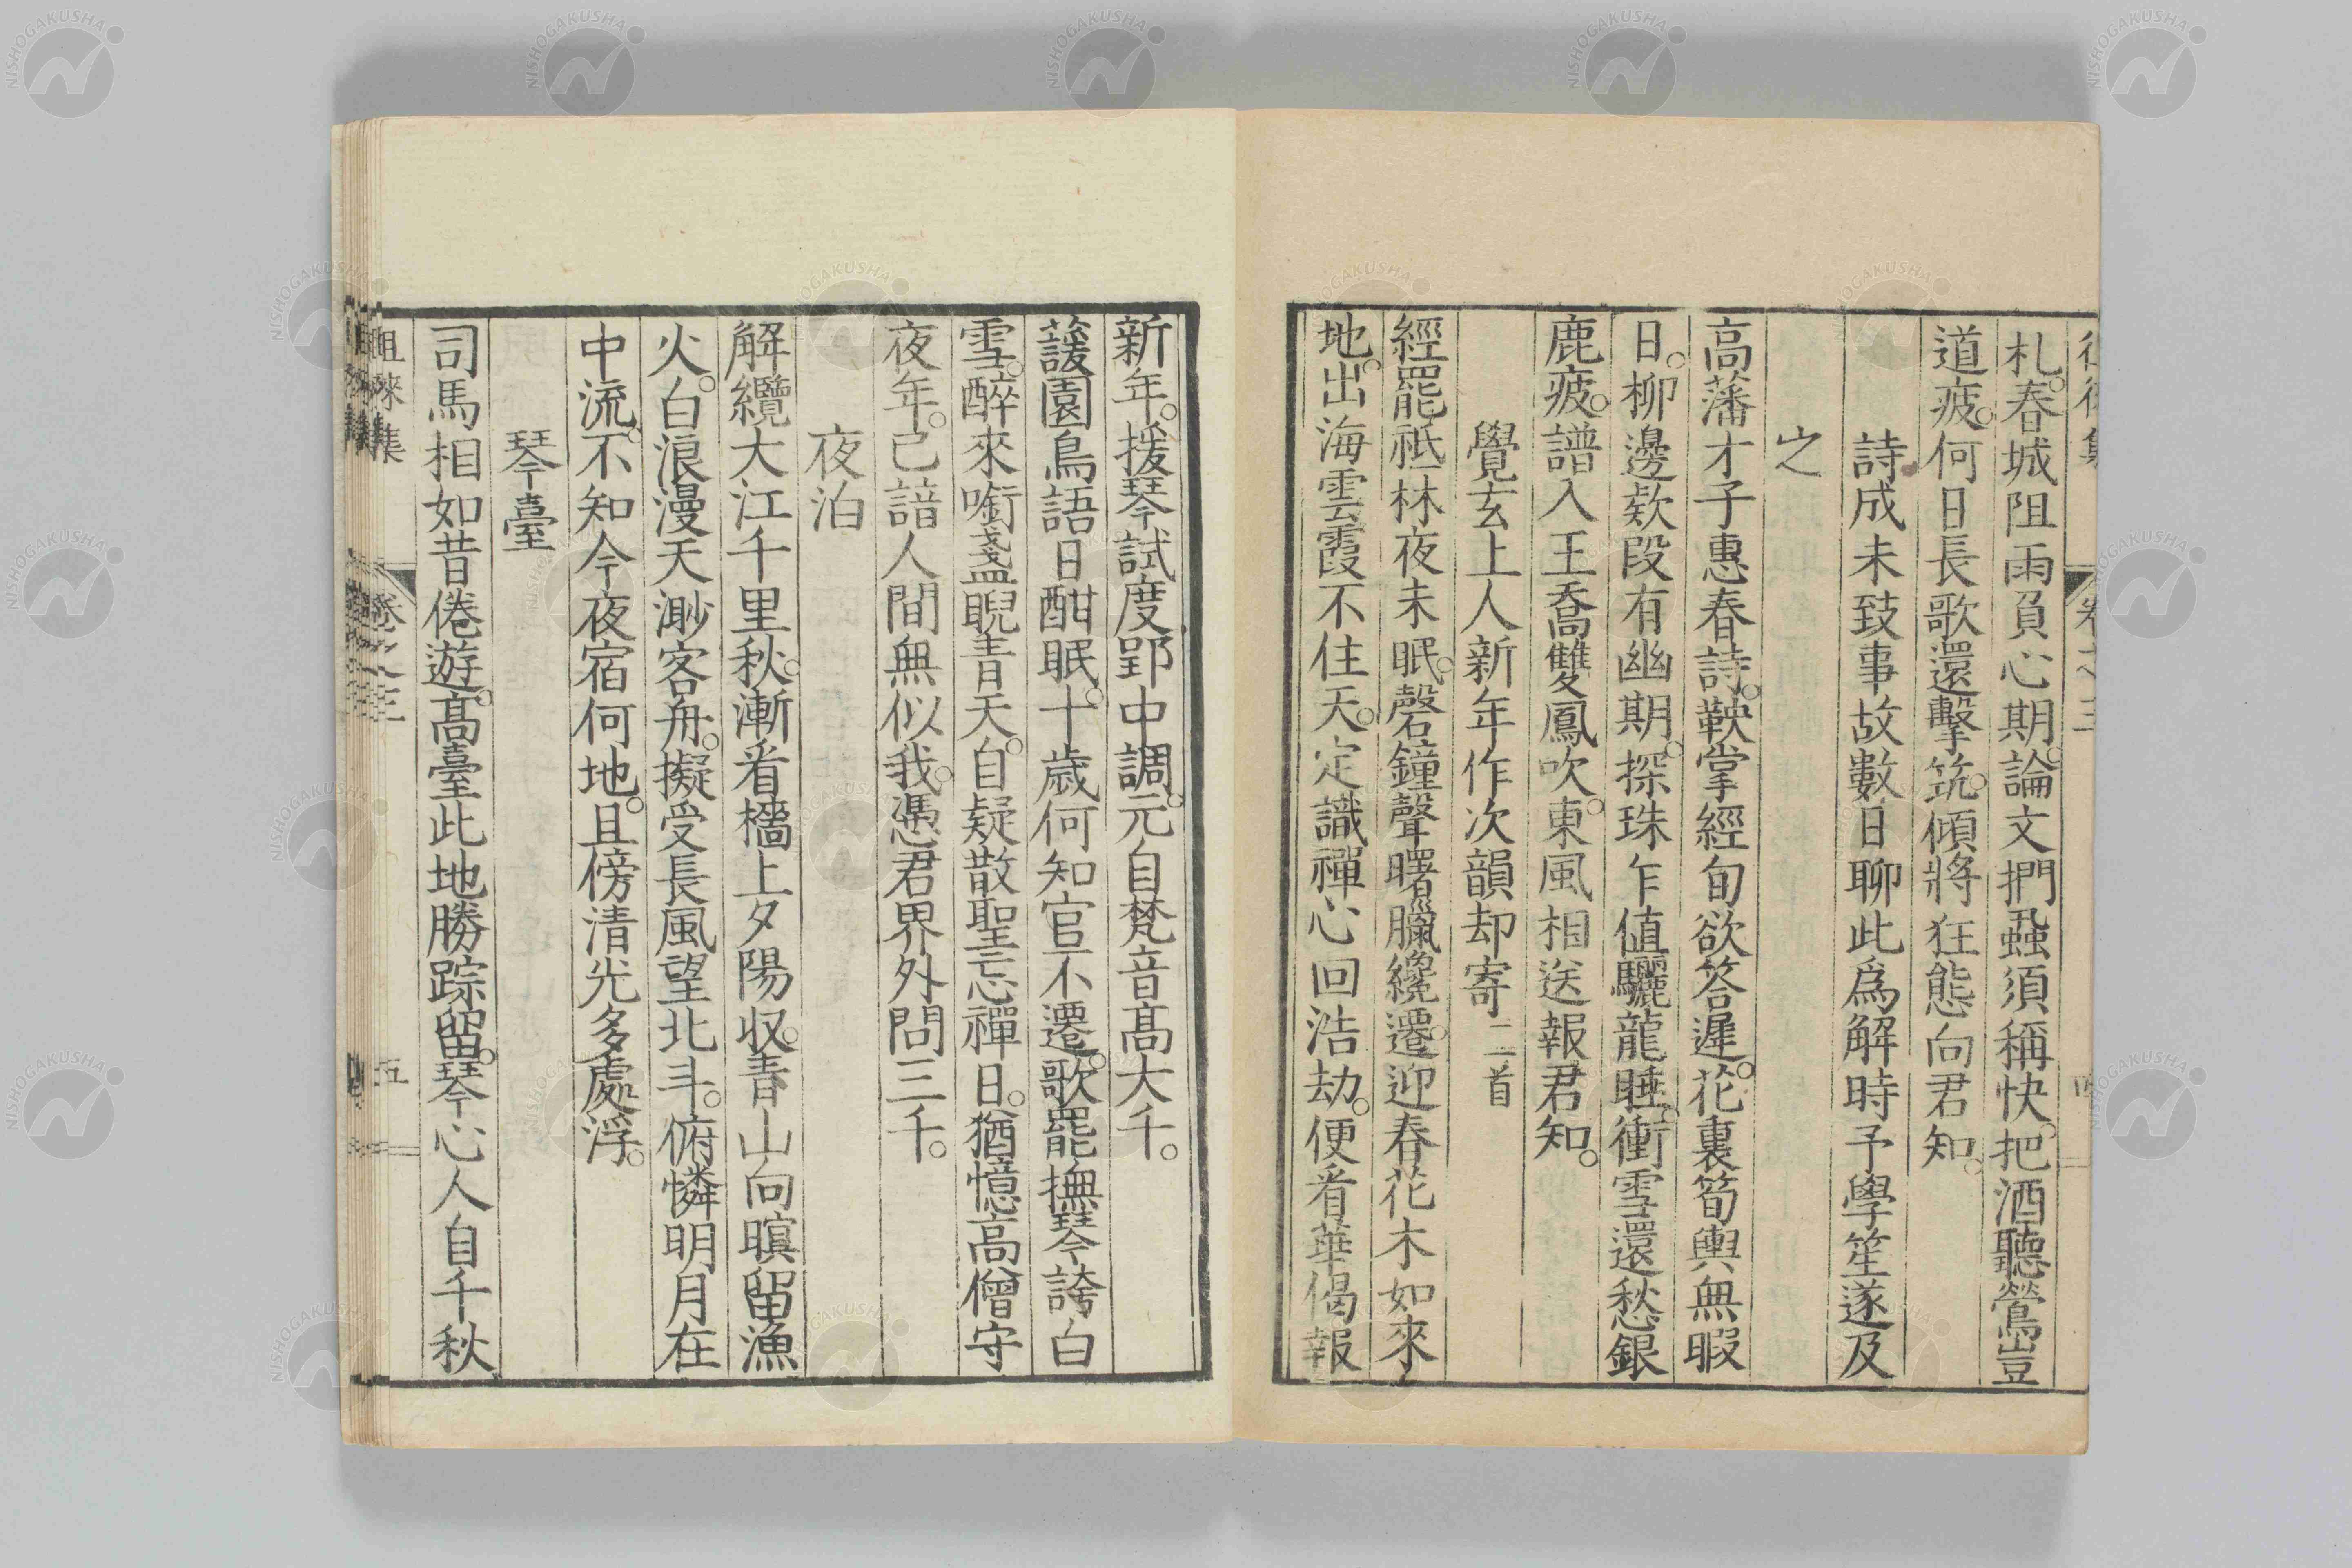 札。春城阻雨負心期。論文捫蝨須稱快。把酒聽鶯豈
道疲。何日長歌還擊筑。傾將狂態向君知。
詩成未致事故數日聊此爲解時予學笙遂及
之
高藩才子惠春詩。鞅掌經旬欲答遲。花裏筍輿無暇
日。柳邊欵段有幽期。探珠乍値驪龍睡。衝雪還愁銀
鹿疲。譜入王喬雙鳳吹。東風相送報君知。
覺玄上人新年作次韻却寄二首
經罷祇林夜未眠。磬鐘聲曙臘纔遷。迎春花木如來
地。出海雲霞不住天。定識禪心回浩劫。便看華偈報
新年。援琴試度郢中調。元自梵音髙大千。
蘐園鳥語日酣眠。十歳何知官不遷。歌罷撫琴誇白
雪。醉來銜盞睨青天。自疑散聖忘禪日。猶憶高僧守
夜年。已諳人間無似我。憑君界外問三千。
夜泊
解纜大江千里秋。漸看檣上夕陽収。青山向暝留漁
火。白浪漫天渺客舟。擬受長風望北斗。俯憐明月在
中流。不知今夜宿何地。且傍清光多處浮。
琴臺
司馬相如昔倦遊。髙臺此地勝踪留。琴心人自千秋
徂徠集 卷之三 五